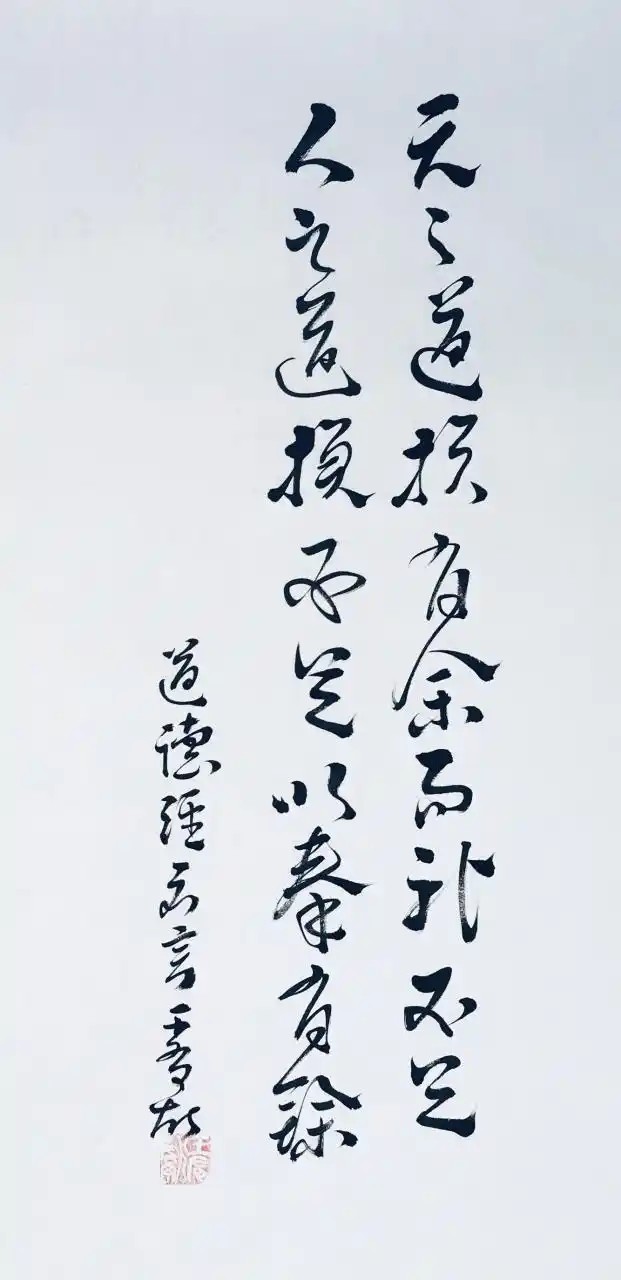 天之道损有余而补不足
人之道损不足以奉有馀
道德经名言